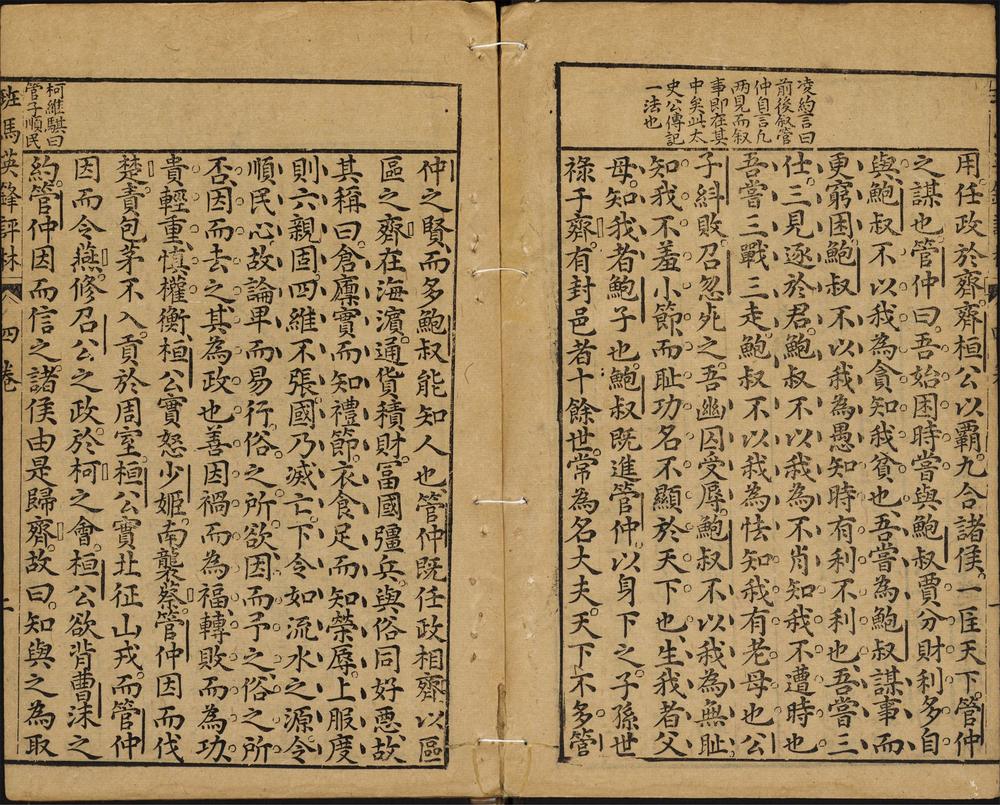 凌約言曰
前後叙管
仲自言凡
两見而叙
事即在其
中矣此太
史公傳記
一法也
用任政於齊齊桓公以霸九合諸侯一匡天下管仲
之謀也管仲曰吾始困時嘗與鮑叔賈分財利多自
與鮑叔不以我為貪知我貧也吾嘗為鮑叔謀事而
更窮困鮑叔不以我為愚知時有利不利也吾嘗三
仕三見逐於君鮑叔不以我為不肖知我不遭時也
吾嘗三戰三走鮑叔不以我為怯知我有老母也公
子糾敗召忽死之吾幽囚受辱鮑叔不以我為無恥
知我不羞小節而恥功名不顯於天下也生我者父
母知我者鮑子也鮑叔既進管仲以身下之子孫世
祿于齊有封邑者十餘世常為名大夫天下不多管
仲之賢而多鮑叔能知人也管仲既任政相齊以區
區之齊在海濱通貨積財富國彊兵與俗同好惡故
其稱曰倉廪實而知禮節衣食足而知榮辱上服度
則六親固四維不張國乃滅亡下令如流水之源令
順民心故論卑而易行俗之所欲因而予之俗之所
否因而去之其為政也善因禍而為福轉敗而為功
貴輕重慎權衡桓公實怒少姬南襲蔡管仲因而伐
楚責包茅不入貢於周室桓公實北征山戎而管仲
因而令燕修召公之政於柯之會桓公欲背曹沬之
約管仲因而信之諸侯由是歸齊故曰知與之為取
柯維騏曰
管子順民
班馬英鋒評林 四卷 二